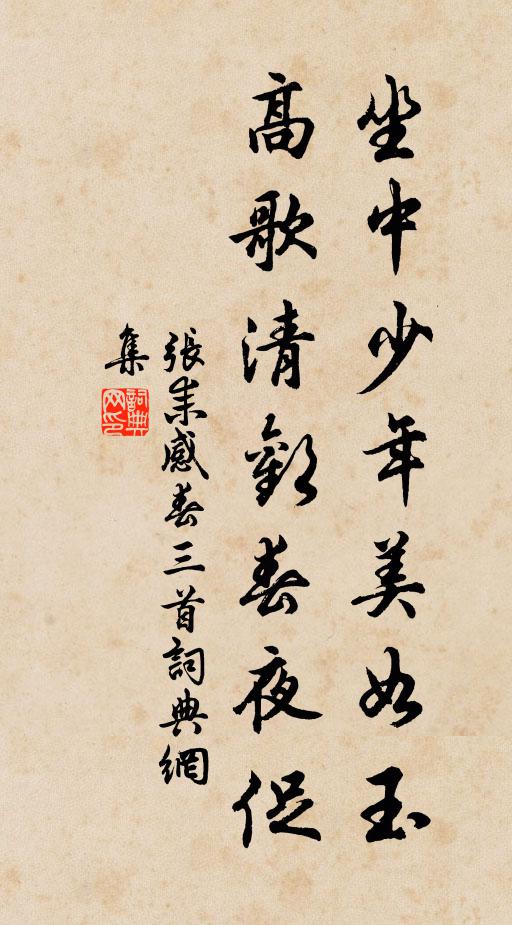 坐中少年美如玉
高歌清歡春夜促
張耒感春三首詞典網
集
詞典
网印